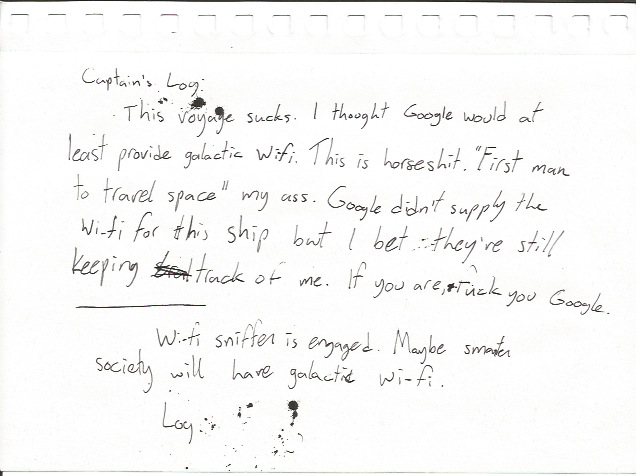 Captain's Log:
This voyage sucks. I thought Google would at
least provide galactic Wifi. This is horseshit. "First man
to travel space" my ass. Google didn't supply the
Wi-fi for this ship but I bet they're still
keeping track of me. If you are, Fuck you Google.
Wi-fi sniffer is engaged. Maybe smarter
society will have galactic wi-fi.
Log: